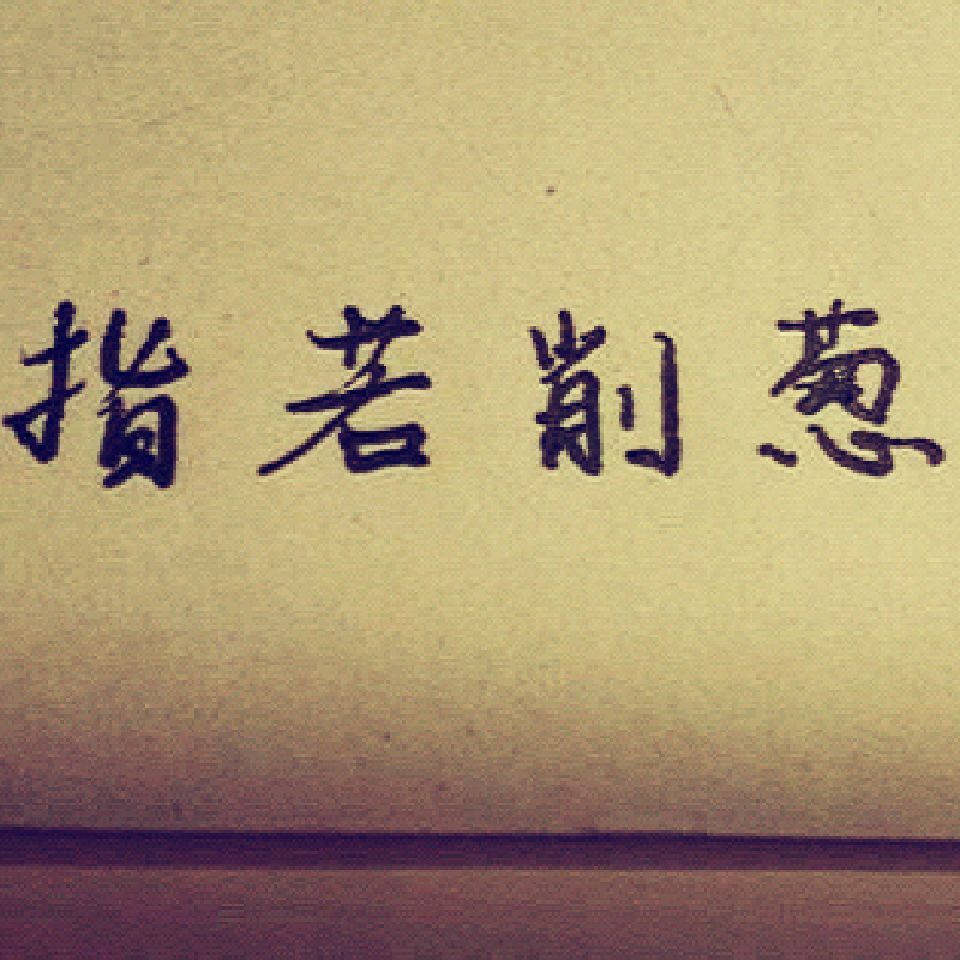 指若削葱